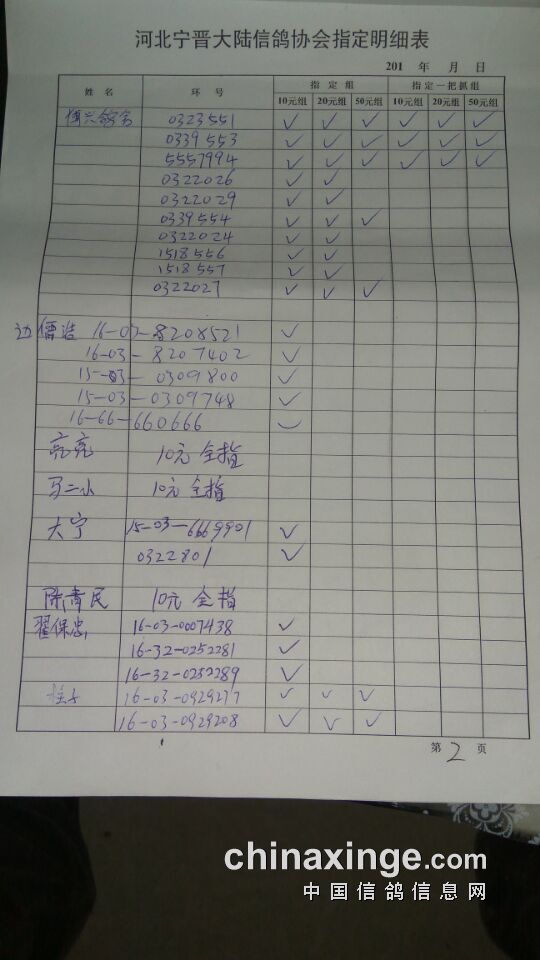 河北宁晋大陆信鸽协会指定明细表
201 年 月 日
姓名 环号 指定组 指定一把抓组
10元组 20元组 50元组 10元组 20元组 50元组
0323551 ✓ ✓ ✓ ✓ ✓ ✓
0339553 ✓ ✓ ✓ ✓ ✓ ✓
5557994 ✓ ✓ ✓ ✓ ✓ ✓
0322026 ✓ ✓
0322029 ✓ ✓
0339554 ✓ ✓ ✓
0322024 ✓ ✓
1518556 ✓ ✓
1518557 ✓ ✓
0322027 ✓ ✓ ✓
16-03-8208521 ✓
16-03-8207402 ✓
15-03-0309800 ✓
15-03-0309748 ✓
16-66-660666 ✓
亮亮 10元全指
马二小 10元全指
大宁 15-03-6669901 ✓
0322801 ✓
陈青民 10元全指
翟保忠 16-03-0007438 ✓
16-32-0252281 ✓
16-32-0252289 ✓
柱子 16-03-0929277 ✓ ✓ ✓
16-03-0929208 ✓ ✓ ✓
第 2 页
chinaxinge.com
中国信鸽信息网